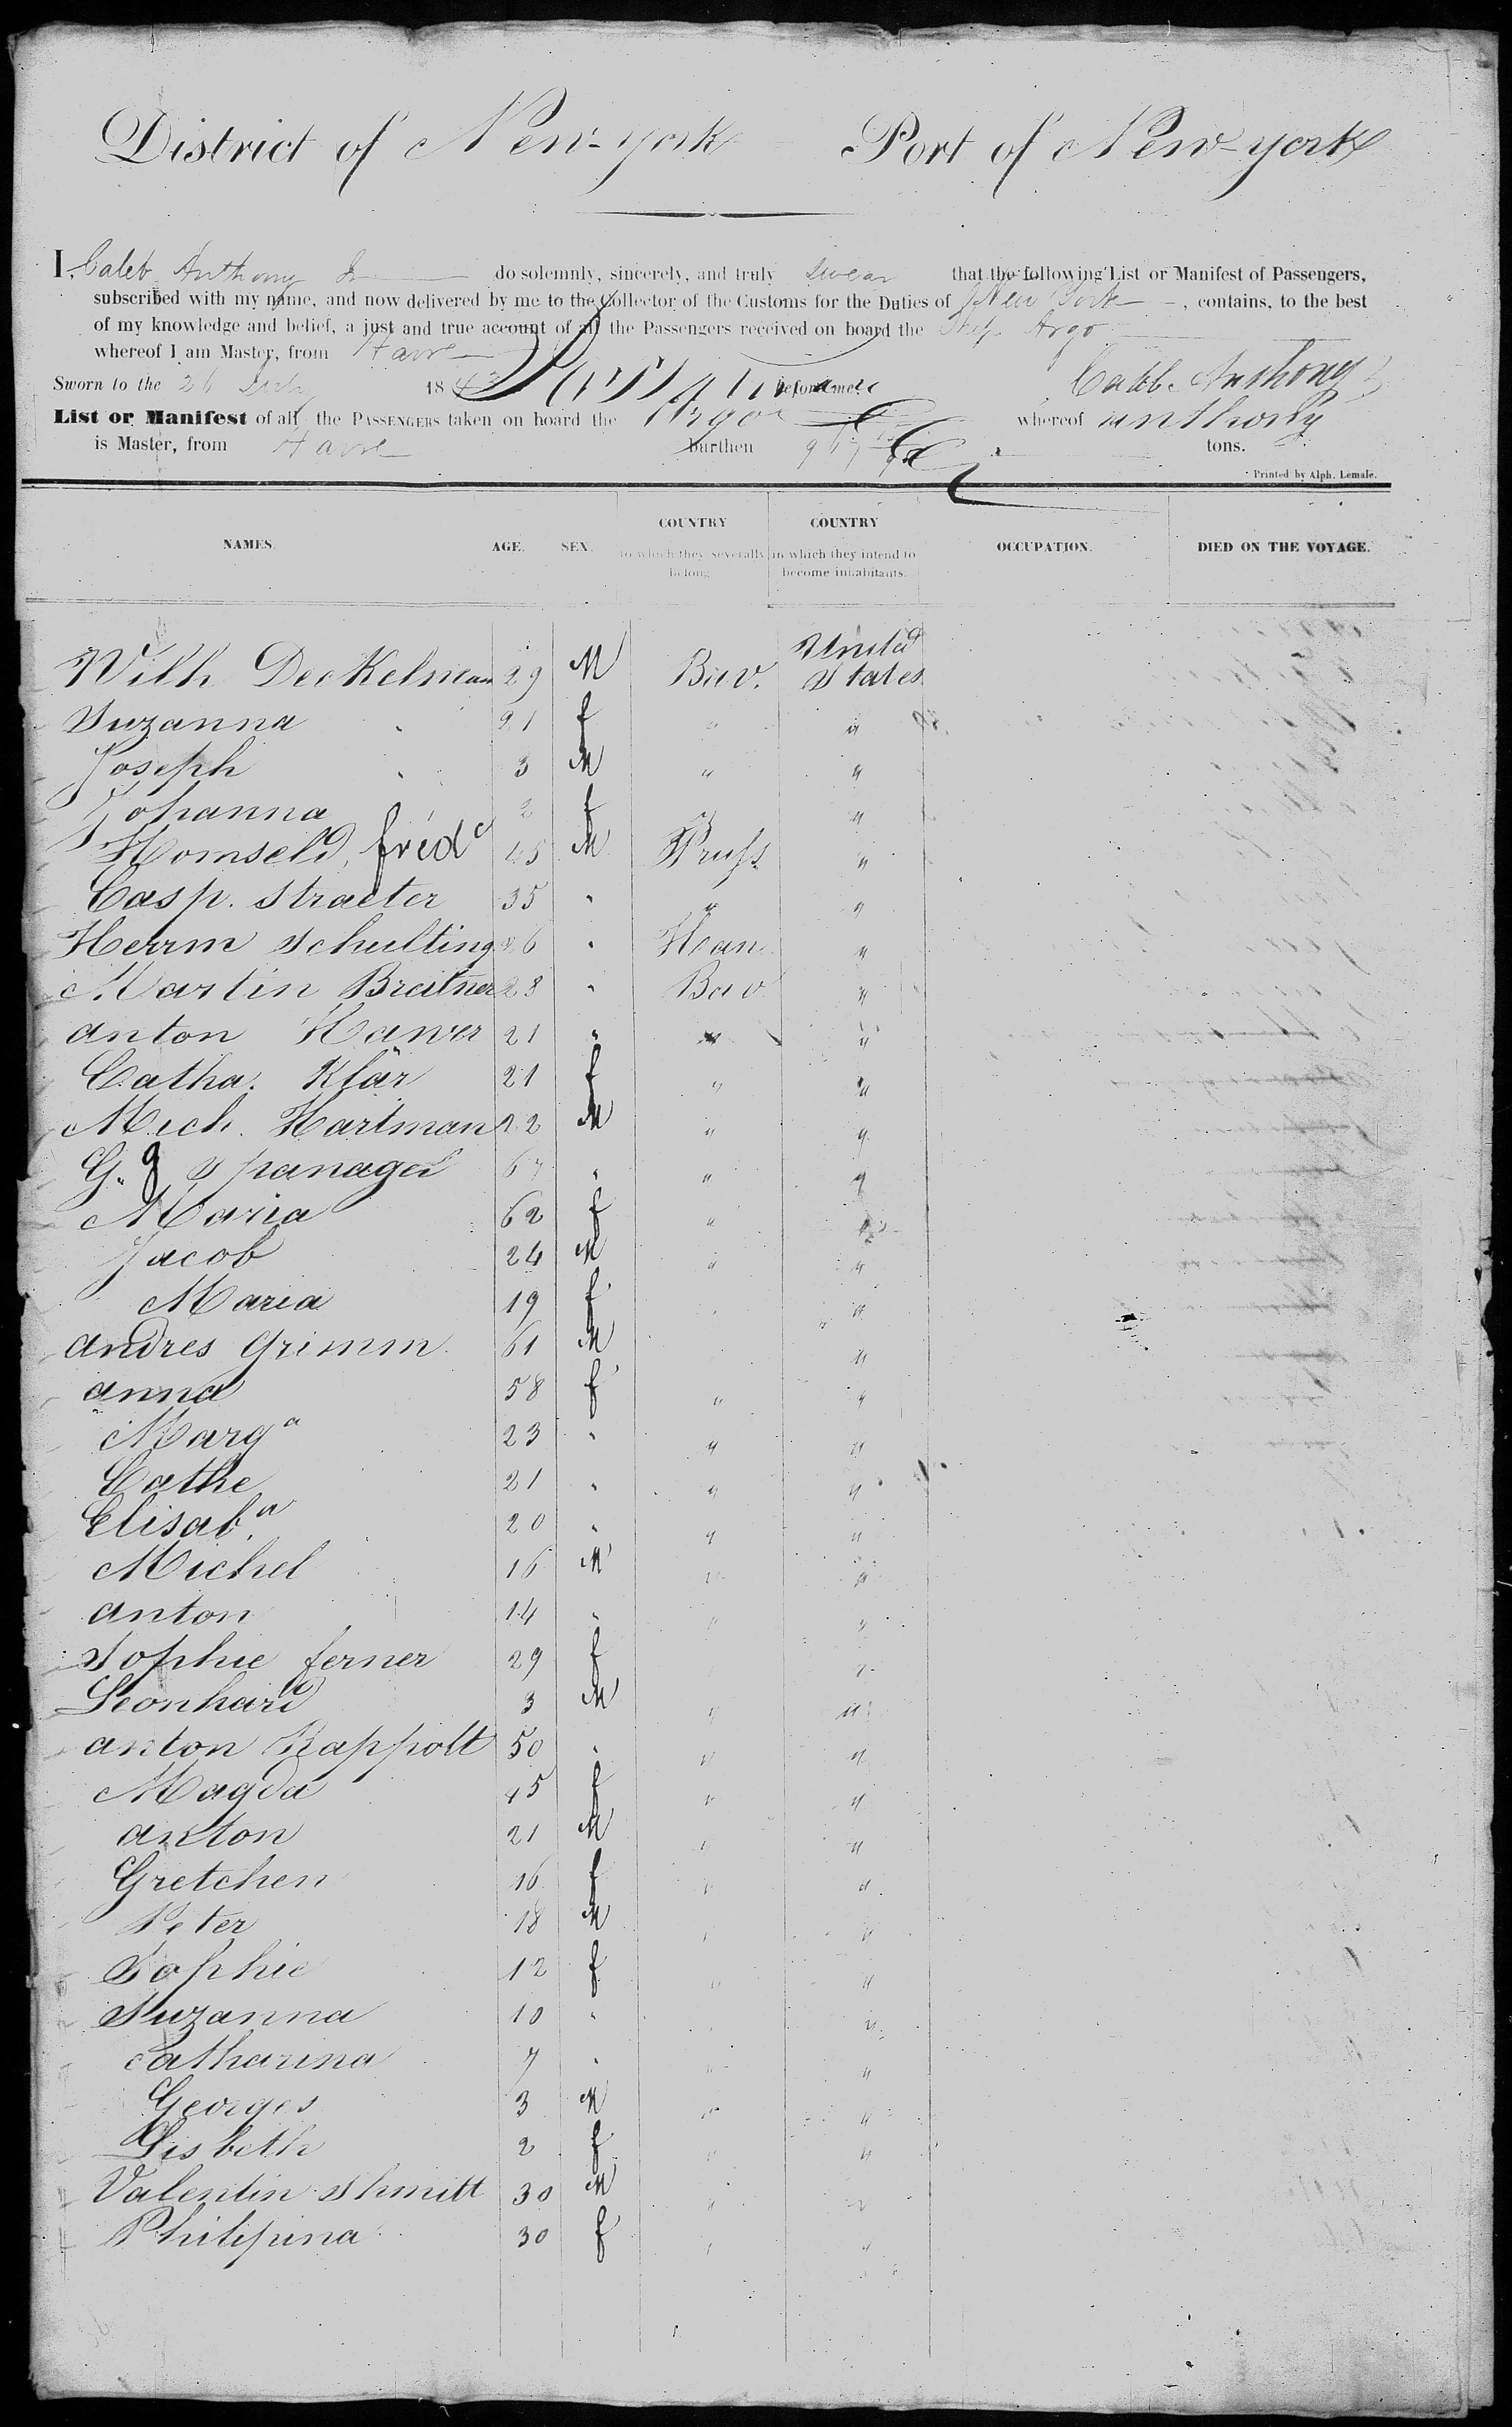 District of New-york Port of New-york
I, Caleb Anthony Jr do solemnly, sincerely, and truly swear that the following List or Manifest of Passengers,
subscribed with my name, and now delivered by me to the Collector of the Customs for the Duties of New York, contains, to the best
of my knowledge and belief, a just and true account of all the Passengers received on board the Ship Argo
whereof I am Master, from Havre
Sworn to the 26 July 1843 before me. Caleb Anthony Jr
List or Manifest of all the PASSENGERS taken on board the Argo whereof Anthony
is Master, from Havre burthen 967 tons.
Printed by Alph. Lemale.
NAMES. AGE. SEX. COUNTRY to which they severally belong COUNTRY in which they intend to become inhabitants. OCCUPATION. DIED ON THE VOYAGE.
Wilh Deckelman 29 M Bav. United States
Suzanna 21 f " "
Joseph 3 M " "
Johanna 2 f " "
Homseld, fredc 45 M Pruss "
Casp. Straeter 35 " " "
Herrm Schulting 26 " Han "
Martin Breitner 28 " Bav "
anton Hawer 21 " " "
Catha. Klär 21 f " "
Mich. Hartman 22 M " "
G. g Spanagel 67 " " "
Maria 62 f " "
Jacob 24 M " "
Maria 19 f " "
andres Grimm 61 M "
anna 58 f " "
Marga 23 " " "
Cathe 21 " " "
Elisaba 20 " " "
Michel 16 M " "
anton 14 " " "
Sophie ferner 29 f "
Leonhard 3 M " "
anton Rappolt 50 " " "
Magda 45 f " "
anton 21 M " "
Gretchen 16 f " "
Peter 18 M " "
Sophie 12 f " "
Suzanna 10 " " "
Catharina 7 " " "
Georges 3 M " "
Lisbeth 2 f " "
Valentin Shmitt 30 M " "
Philipina 30 f " "